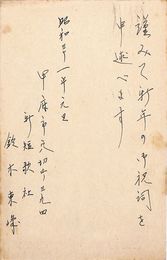 謹みて新年の御祝詞を
申述べます
昭和三十一年元旦
甲府市
新短歌社
鈴木東